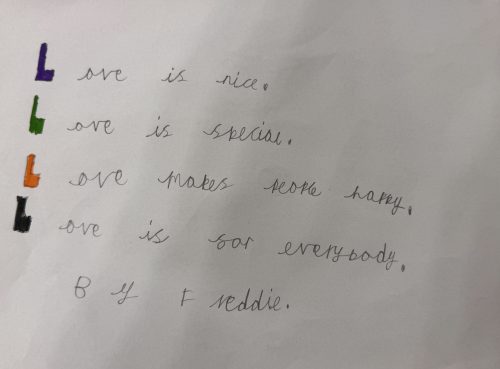 Love is nice.
Love is special.
Love makes people happy.
Love is for everybody.
By Freddie.